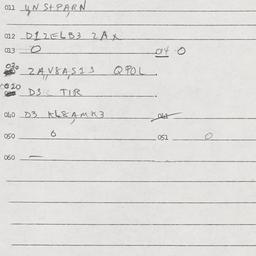 011 YN StPARN
012 D12ELB3 2AX
013 0 014 0
020 2AV8AS13 QPOL
020 D3 TIR
040 D3 KL8AMK3 041
050 6 051 0
060 —